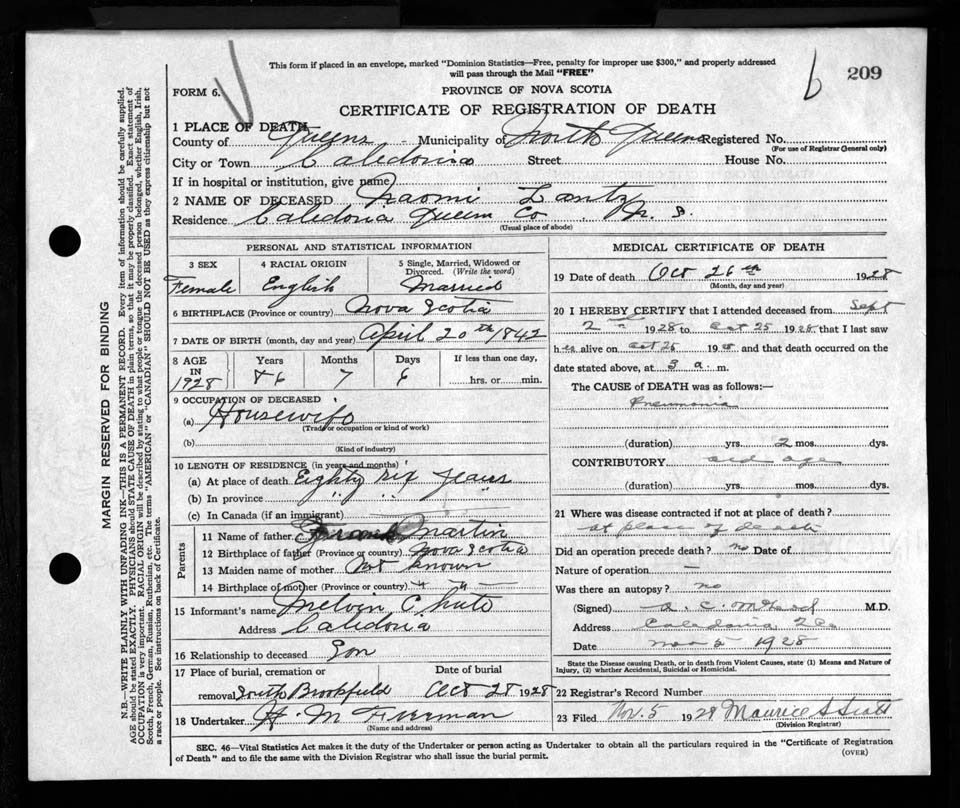 This form if placed in an envelope, marked "Dominion Statistics—Free, penalty for improper use $300," and properly addressed
will pass through the Mail "FREE"
b 209
FORM 6.
PROVINCE OF NOVA SCOTIA
CERTIFICATE OF REGISTRATION OF DEATH
1 PLACE OF DEATH
County of Queens Municipality of North Queens Registered No.
(For use of Registrar General only)
City or Town Caledonia Street House No.
If in hospital or institution, give name
2 NAME OF DECEASED Naomi Lantz
Residence Caledonia Queens Co N. S.
(Usual place of abode)
PERSONAL AND STATISTICAL INFORMATION
3 SEX 4 RACIAL ORIGIN 5 Single, Married, Widowed or
Divorced. (Write the word)
Female English Married
6 BIRTHPLACE (Province or country) Nova Scotia
7 DATE OF BIRTH (month, day and year) April 20th 1842
8 AGE IN Years Months Days If less than one day,
1928 86 7 6 hrs. or min.
9 OCCUPATION OF DECEASED
(a) Housewife
(Trade or occupation or kind of work)
(b)
(Kind of industry)
10 LENGTH OF RESIDENCE (in years and months)
(a) At place of death Eighty six years
(b) In province " "
(c) In Canada (if an immigrant)
Parents
11 Name of father Martin
12 Birthplace of father (Province or country) Nova Scotia
13 Maiden name of mother Not Known
14 Birthplace of mother (Province or country) " "
15 Informant's name Melvin Chute
Address Caledonia
16 Relationship to deceased Son
17 Place of burial, cremation or Date of burial
removal South Brookfield Oct 28 1928
18 Undertaker H. M Freeman
(Name and address)
MEDICAL CERTIFICATE OF DEATH
19 Date of death Oct 26th 1928
(Month, day and year)
20 I HEREBY CERTIFY that I attended deceased from Sept
2nd 1928 to Oct 25 1928 that I last saw
her alive on Oct 25 1928 and that death occurred on the
date stated above, at 3 a. m.
The CAUSE OF DEATH was as follows:—
Pneumonia
(duration) yrs. 2 mos. dys.
CONTRIBUTORY old age
(duration) yrs. mos. dys.
21 Where was disease contracted if not at place of death?
at place of death
Did an operation precede death? no Date of
Nature of operation —
Was there an autopsy? no
(Signed) A. C. M.D.
Address Caledonia
Date Nov 5 1928
State the Disease causing Death, or in death from Violent Causes, state (1) Means and Nature of
Injury, (2) whether Accidental, Suicidal or Homicidal.
22 Registrar's Record Number
23 Filed Nov. 5 1928 Maurice S Scott
(Division Registrar)
SEC. 46—Vital Statistics Act makes it the duty of the Undertaker or person acting as Undertaker to obtain all the particulars required in the "Certificate of Registration
of Death" and to file the same with the Division Registrar who shall issue the burial permit.
(OVER)
MARGIN RESERVED FOR BINDING
N.B.—WRITE PLAINLY WITH UNFADING INK—THIS IS A PERMANENT RECORD. Every item of information should be carefully supplied.
AGE should be stated EXACTLY. PHYSICIANS should STATE CAUSE OF DEATH in plain terms, so that it may be properly classified. Exact statement of
OCCUPATION is very important. RACIAL ORIGIN will be described by stating to what people or tongue the deceased person belonged, whether English, Irish,
Scotch, French, German, Russian, Ruthenian, etc. The terms "AMERICAN" or "CANADIAN" SHOULD NOT BE USED as they express citizenship but not
a race or people. See instructions on back of Certificate.